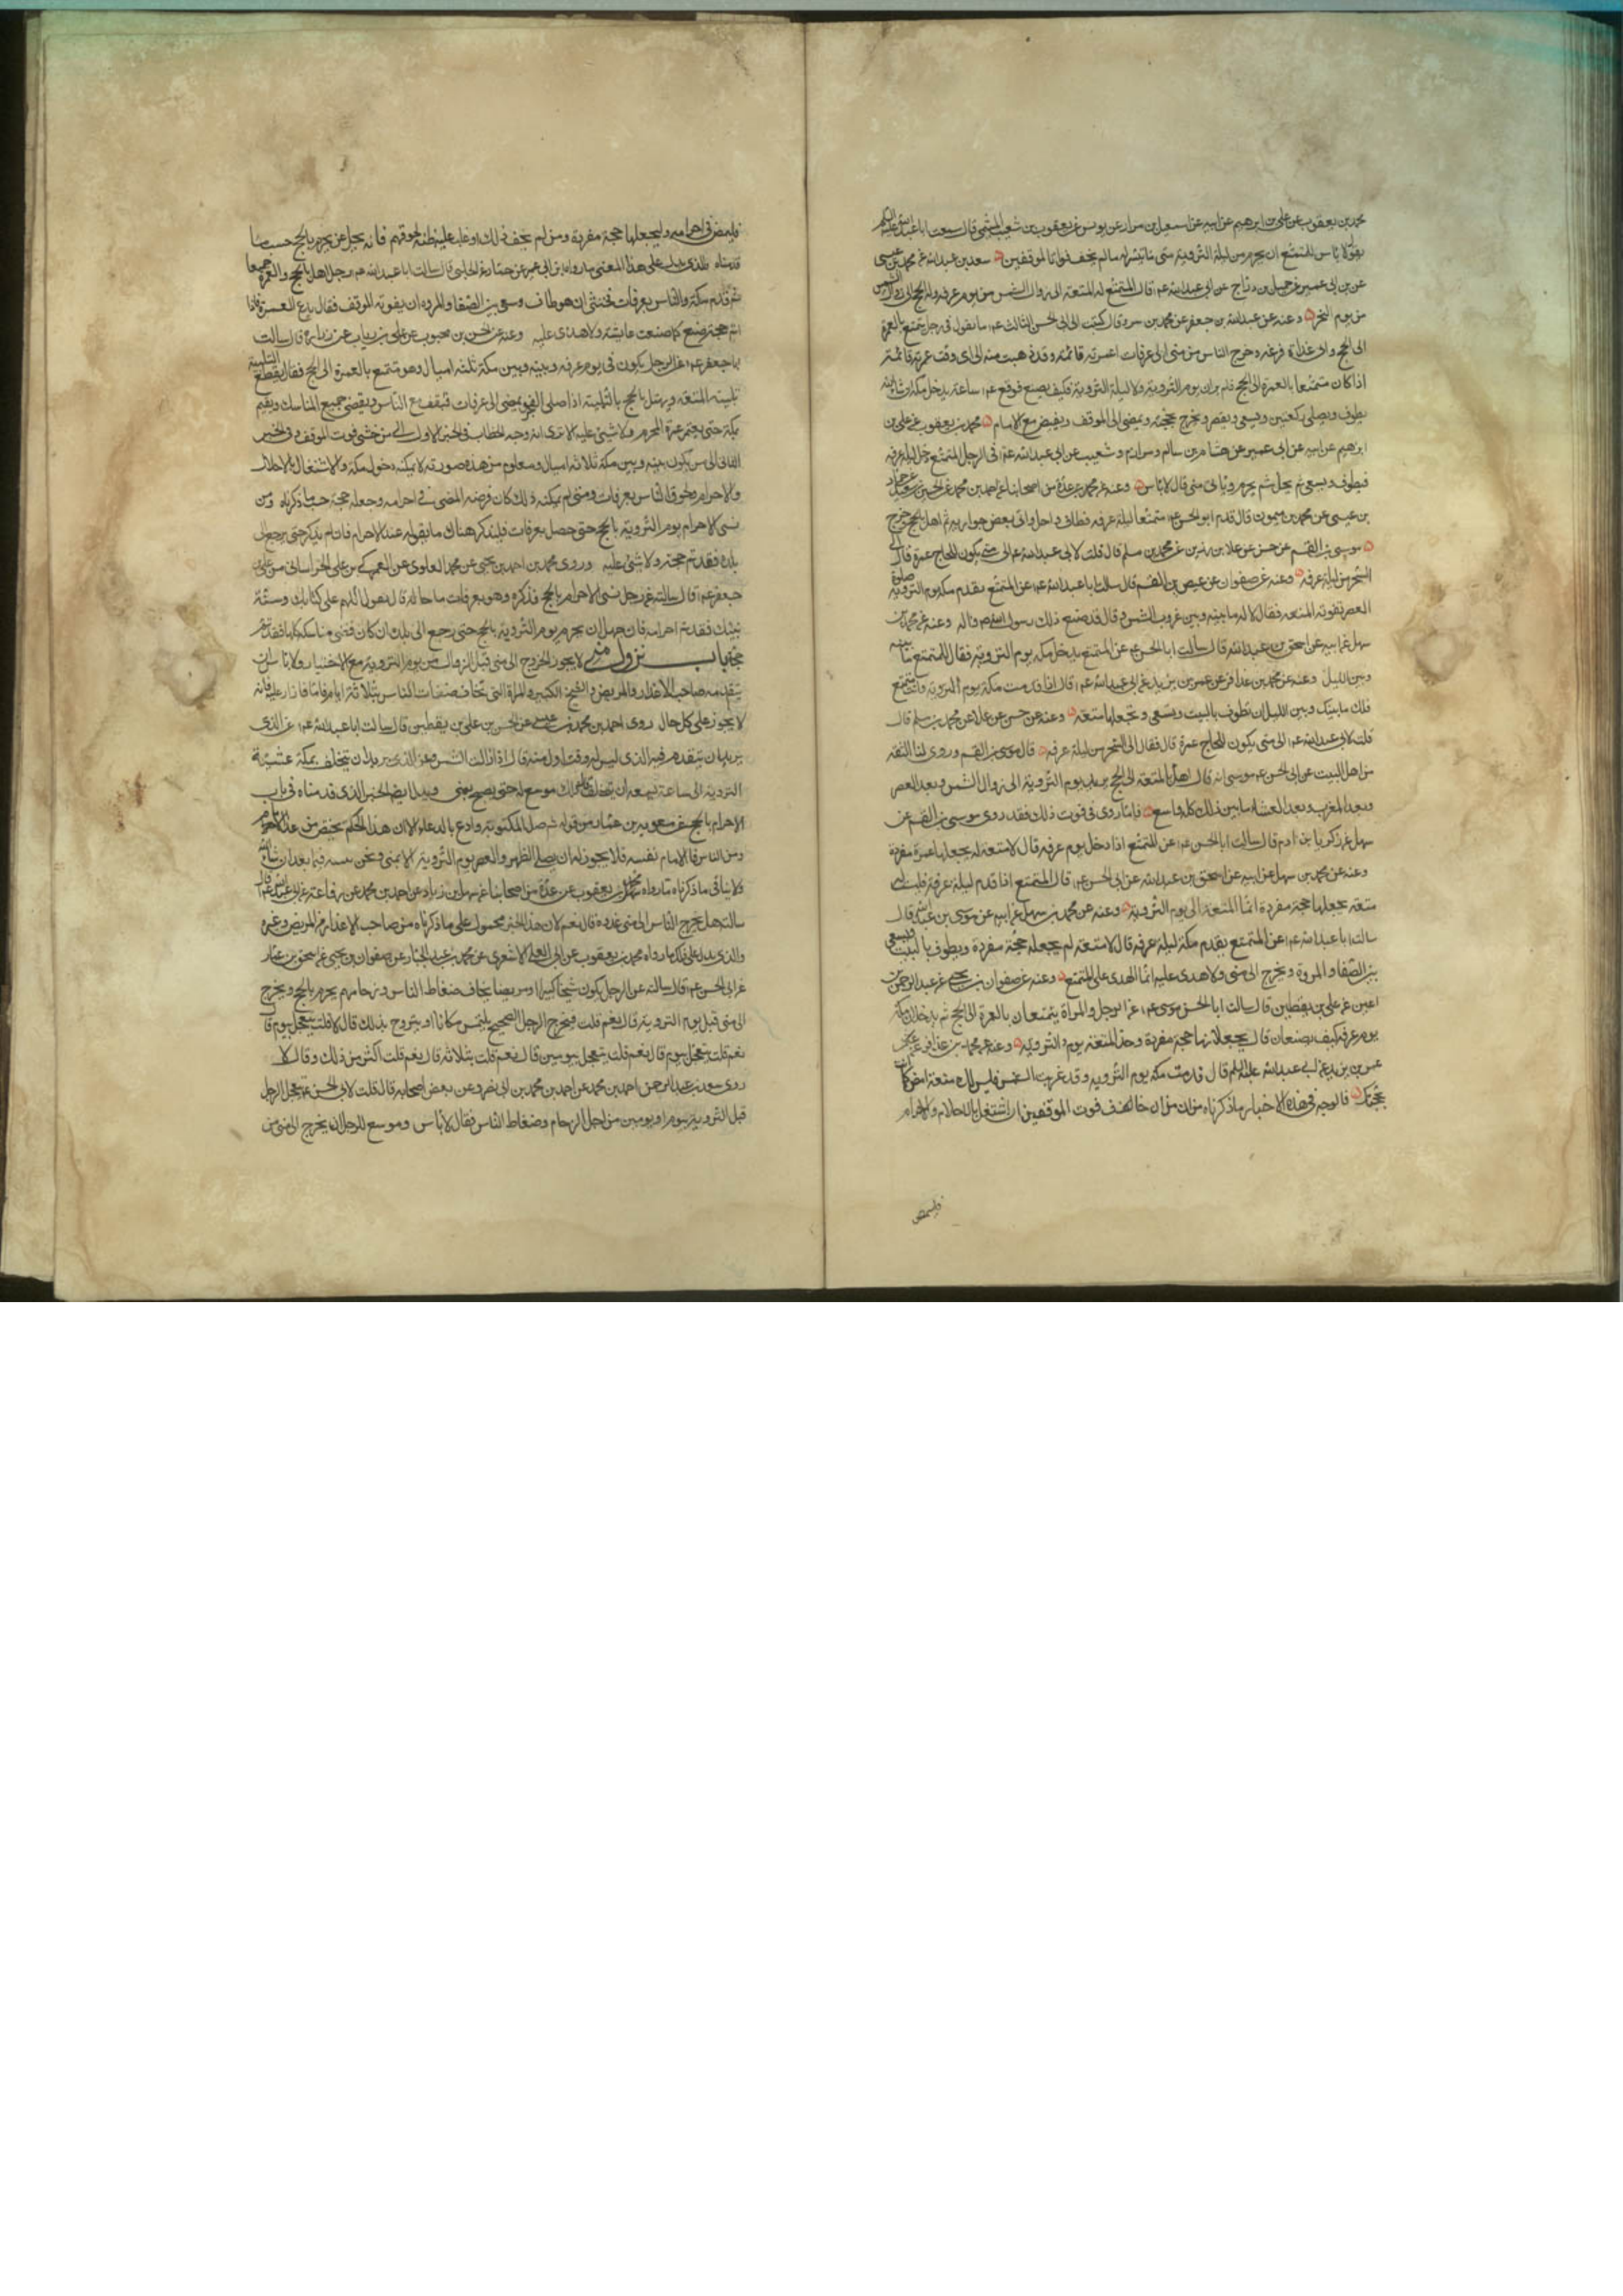 محمد بن يعقوب عن علي بن ابرهيم عن ابيه عن اسمعيل بن مرار عن يونس عن يعقوب بن شعيب الميثمي قال سمعت ابا عبدالله عليه السلم
يقول لا باس للمتمتع ان يحرم من ليلة التروية متى ما تيسر له ما لم يخف فوات الموقفين سعد بن عبدالله عن محمد بن عيسى
عن ابن ابي عمير عن جميل بن دراج عن ابي عبدالله ع قال المتمتع له المتعة الى زوال الشمس من يوم عرفه وله الحج الى زوال الشمس
من يوم النحر وعنه عن عبدالله بن جعفر عن محمد بن سرد قال كتبت الى ابي الحسن الثالث ع ما تقول في رجل تمتع بالعمرة
الى الحج وافى غداة عرفه وخرج الناس من منى الى عرفات اعمرته قائمة وقد ذهبت منه الى اي وقت عمرته قائمة
اذا كان متمتعا بالعمرة الى الحج فلم يواف يوم التروية ولا ليلة التروية فكيف يصنع فوقع ع ساعة يدخل مكة ان شاء الله
يطوف ويصلي ركعتين ويسعى ويقصر ويخرج بحجته ويمضي الى الموقف ويفيض مع الامام محمد بن يعقوب عن علي بن
ابرهيم عن ابيه عن ابن ابي عمير عن هشام بن سالم ومرازم وشعيب عن ابي عبدالله ع في الرجل المتمتع دخل ليلة عرفه
فيطوف ويسعى ثم يحل ثم يحرم وياتي منى قال لا باس وعنه عن عدة من اصحابنا عن احمد بن محمد عن الحسين بن سعيد عن حماد
بن عيسى عن محمد بن ميمون قال قدم ابو الحسن ع متمتعا ليلة عرفه فطاف واحل واتى بعض جواريه ثم اهل بالحج وخرج
موسى بن القسم عن حسن عن علا بن رزين عن محمد بن مسلم قال قلت لابي عبدالله ع الى متى يكون للحاج عمرة قال الى
السحر من ليلة عرفه وعنه عن صفوان عن عيص بن القسم قال سالت ابا عبدالله ع عن المتمتع يقدم مكة يوم التروية صلوة
العصر تفوته المتعه فقال لا له ما بينه وبين غروب الشمس وقال قد صنع ذلك رسول الله ص واله وعنه عن محمد بن
سهل عن ابيه عن اسحق بن عبدالله قال سالت ابا الحسن ع عن المتمتع يدخل مكه يوم التروية فقال للمتمتع ما بينه
وبين الليل وعنه عن محمد بن عذافر عن عمر بن يزيد عن ابي عبدالله ع قال اذا قدمت مكة يوم التروية وانت متمتع
فلك ما بينك وبين الليل ان تطوف بالبيت وتسعى وتجعلها متعة وعنه عن حسن عن علا عن محمد بن مسلم قال
قلت لابي عبدالله ع الى متى يكون للحاج عمرة قال فقال الى السحر من ليلة عرفه قال موسى بن القسم وروى لنا الثقه
من اهل البيت عن ابي الحسن موسى انه قال اهل بالمتعة الى الحج يريد يوم التروية الى زوال الشمس وبعد العصر
وبعد المغرب وبعد العشاء ما بين ذلك كله واسع فاما ما روى في فوت ذلك فقد روى موسى بن القسم عن
سهل عن زكريا بن ادم قال سالت ابا الحسن ع عن المتمتع اذا دخل يوم عرفه قال لا متعة له يجعلها عمرة مفردة
وعنه عن محمد بن سهل عن ابيه عن اسحق بن عبدالله عن ابي الحسن ع قال المتمتع اذا قدم ليلة عرفة فليست له
متعة يجعلها حجة مفردة انما المتعة الى يوم التروية وعنه عن محمد بن سهل عن ابيه عن موسى بن عبدالله قال
سالت ابا عبدالله ع عن المتمتع يقدم مكة ليلة عرفه قال لا متعة له يجعلها حجة مفردة ويطوف بالبيت ويسعى
بين الصفا والمروة ويخرج الى منى ولا هدى عليه انما الهدى على المتمتع وعنه عن صفوان بن يحيى عن عبدالرحمن بن
اعين عن علي بن يقطين قال سالت ابا الحسن موسى ع عن الرجل والمراة يتمتعان بالعمرة الى الحج ثم يدخلان مكة
يوم عرفة كيف يصنعان قال يجعلانها حجة مفردة وحد المتعة يوم التروية وعنه عن محمد بن عذافر عن
عمر بن يزيد عن ابي عبدالله عليه السلم قال اذا قدمت مكه يوم التروية وقد غربت الشمس فليس لك متعة امض كما انت
بحجتك فالوجه في هذه الاخبار ما ذكرناه من ان من خاف فوت الموقفين ان اشتغل بالاحلال والاحرام
فليمض
فليمض في احرامه وليجعلها حجة مفردة ومن لم يخف ذلك او غلب على ظنه لحوقهم فانه يحل ثم يحرم بالحج حسب ما
قدمناه والذي يدل على هذا المعنى ما رواه ابن ابي عمير عن حماد عن الحلبي قال سالت ابا عبدالله ع عن رجل اهل بالحج والعمرة جميعا
ثم قدم مكة والناس بعرفات فخشي ان هو طاف وسعى بين الصفا والمروه ان يفوته الموقف فقال يدع العمرة فاذا
اتم حجه صنع كما صنعت عايشة ولا هدى عليه وعنه عن الحسن بن محبوب عن علي بن رياب عن زرارة قال سالت
ابا جعفر ع عن الرجل يكون في يوم عرفه وبينه وبين مكة ثلثه اميال وهو متمتع بالعمرة الى الحج فقال يقطع التلبية
تلبية المتعه ويهل بالحج بالتلبية اذا صلى الفجر ويمضي الى عرفات فيقف مع الناس ويقضي جميع المناسك ويقيم
بمكة حتى يعتمر عمرة المحرم ولا شئ عليه الا ترى انه وجه الخطاب في الخبر الاول الى من خشي فوت الموقف وفي الخبر
الثاني الى من يكون بينه وبين مكة ثلاثة اميال ومعلوم من هذه صورته لا يمكنه دخول مكة والاشتغال بالاحلال
والاحرام ولحوق الناس بعرفات ومتى لم يمكنه ذلك كان فرضه المضي في احرامه وجعله حجة حسب ما ذكرناه ومن
نسي الاحرام يوم التروية بالحج حتى حصل بعرفات فليذكر هناك ما يقوله عند الاحرام فان لم يذكر حتى يرجع الى
بلده فقد تم حجته ولا شئ عليه وروى محمد بن احمد بن يحيى عن محمد العلوي عن العمركي بن علي الخراساني عن علي بن
جعفر ع قال سالته عن رجل نسي الاحرام بالحج فذكره وهو بعرفات ما حاله قال يقول اللهم على كتابك وسنة
نبيك فقد تم احرامه فان جهل ان يحرم يوم التروية بالحج حتى رجع الى بلده ان كان قضى مناسكه كلها فقد تم
حجه باب نزول منى لا يجوز الخروج الى منى قبل الزوال من يوم التروية مع الاختيار ولا باس ان
يتقدمه صاحب الاعذار والمريض والشيخ الكبير والمراة التي تخاف ضغاث الناس بثلاثة ايام فاما ما زاد عليه فانه
لا يجوز على كل حال روى احمد بن محمد بن عيسى عن الحسن بن علي بن يقطين قال سالت ابا عبدالله ع عن الذي
يريد ان يتقدم فيه الذي ليس له وقت اول منه قال اذا زالت الشمس وعن الذي يريد ان يتخلف بمكة عشية
التروية الى اي ساعة يسعه ان يتخلف قال ذلك موسع له حتى يصبح بمنى ويدل ايضا الخبر الذي قدمناه في باب
الاحرام بالحج عن معويه بن عمار من قوله ثم صل المكتوبة وادع بالدعاء الا ان هذا الحكم يختص من عدا الامام
ومن الناس فاما الامام نفسه فلا يجوز له ان يصلي الظهر والعصر يوم التروية الا بمنى ونحن نبينه فيما بعد ان شاء الله
ولا ينافي ما ذكرناه ما رواه محمد بن يعقوب عن عدة من اصحابنا عن سهل بن زياد عن احمد بن محمد عن رفاعة عن ابي عبدالله ع قال
سالته هل يخرج الناس الى منى غدوة قال نعم لان هذا الخبر محمول على ما ذكرناه من صاحب الاعذار من المريض وغيره
والذي يدل على ذلك ما رواه محمد بن يعقوب عن ابي علي الاشعري عن محمد بن عبدالجبار عن صفوان بن يحيى عن اسحق بن عمار
عن ابي الحسن ع قال سالته عن الرجل يكون شيخا كبيرا او مريضا يخاف ضغاط الناس وزحامهم يحرم بالحج ويخرج
الى منى قبل يوم التروية قال نعم قلت فيخرج الرجل الصحيح يلتمس مكانا او يتروح بذلك قال لا قلت يتعجل بيوم قال
نعم قلت يتعجل بيومين قال نعم قلت بثلاثة قال نعم قلت اكثر من ذلك وقال لا
روى سعد بن عبدالله عن احمد بن محمد عن احمد بن محمد بن ابي نصر عن بعض اصحابه قال قلت لابي الحسن ع يتعجل الرجل
قبل التروية بيوم او يومين من اجل الزحام وضغاط الناس فقال لا باس وموسع للرجل ان يخرج الى منى من